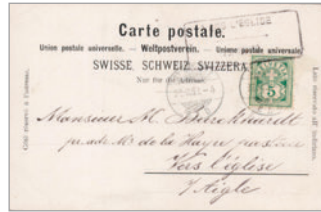 Carte postale.
VERS L'EGLISE
Union postale universelle. — Weltpostverein. — Unione postale universale.
SWISSE. SCHWEIZ. SVIZZERA.
Nur für die Adresse.
Côté réservé à l'adresse.
Lato riservato all' indirizzo.
HELVETIA
5
Monsieur M. Burckhardt
de la Haye pasteur
Vers l'église
s/ Aigle